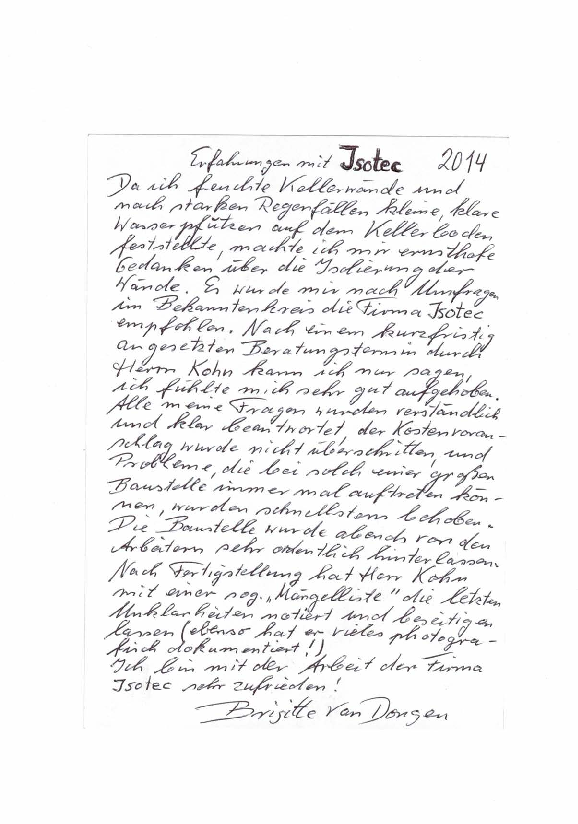 Erfahrungen mit Isotec 2014
Da ich feuchte Kellerwände und
nach starken Regenfällen kleine, klare
Wasserpfützen auf dem Kellerboden
feststellte, machte ich mir ernsthafte
Gedanken über die Isolierung der
Wände. Es wurde mir nach Umfragen
im Bekanntenkreis die Firma Isotec
empfohlen. Nach einem kurzfristig
angesetzten Beratungstermin durch
Herrn Kohn kann ich nur sagen,
ich fühlte mich sehr gut aufgehoben.
Alle meine Fragen wurden verständlich
und klar beantwortet, der Kostenvoran-
schlag wurde nicht überschritten, und
Probleme, die bei solch einer großen
Baustelle immer mal auftreten kön-
nen, wurden schnellstens behoben.
Die Baustelle wurde abends von den
Arbeitern sehr ordentlich hinterlassen.
Nach Fertigstellung hat Herr Kohn
mit einer sog. „Mängelliste" die letzten
Unklarheiten notiert und beseitigen
lassen (ebenso hat er vieles photogra-
fisch dokumentiert!)
Ich bin mit der Arbeit der Firma
Isotec sehr zufrieden!
Brigitte van Dongen